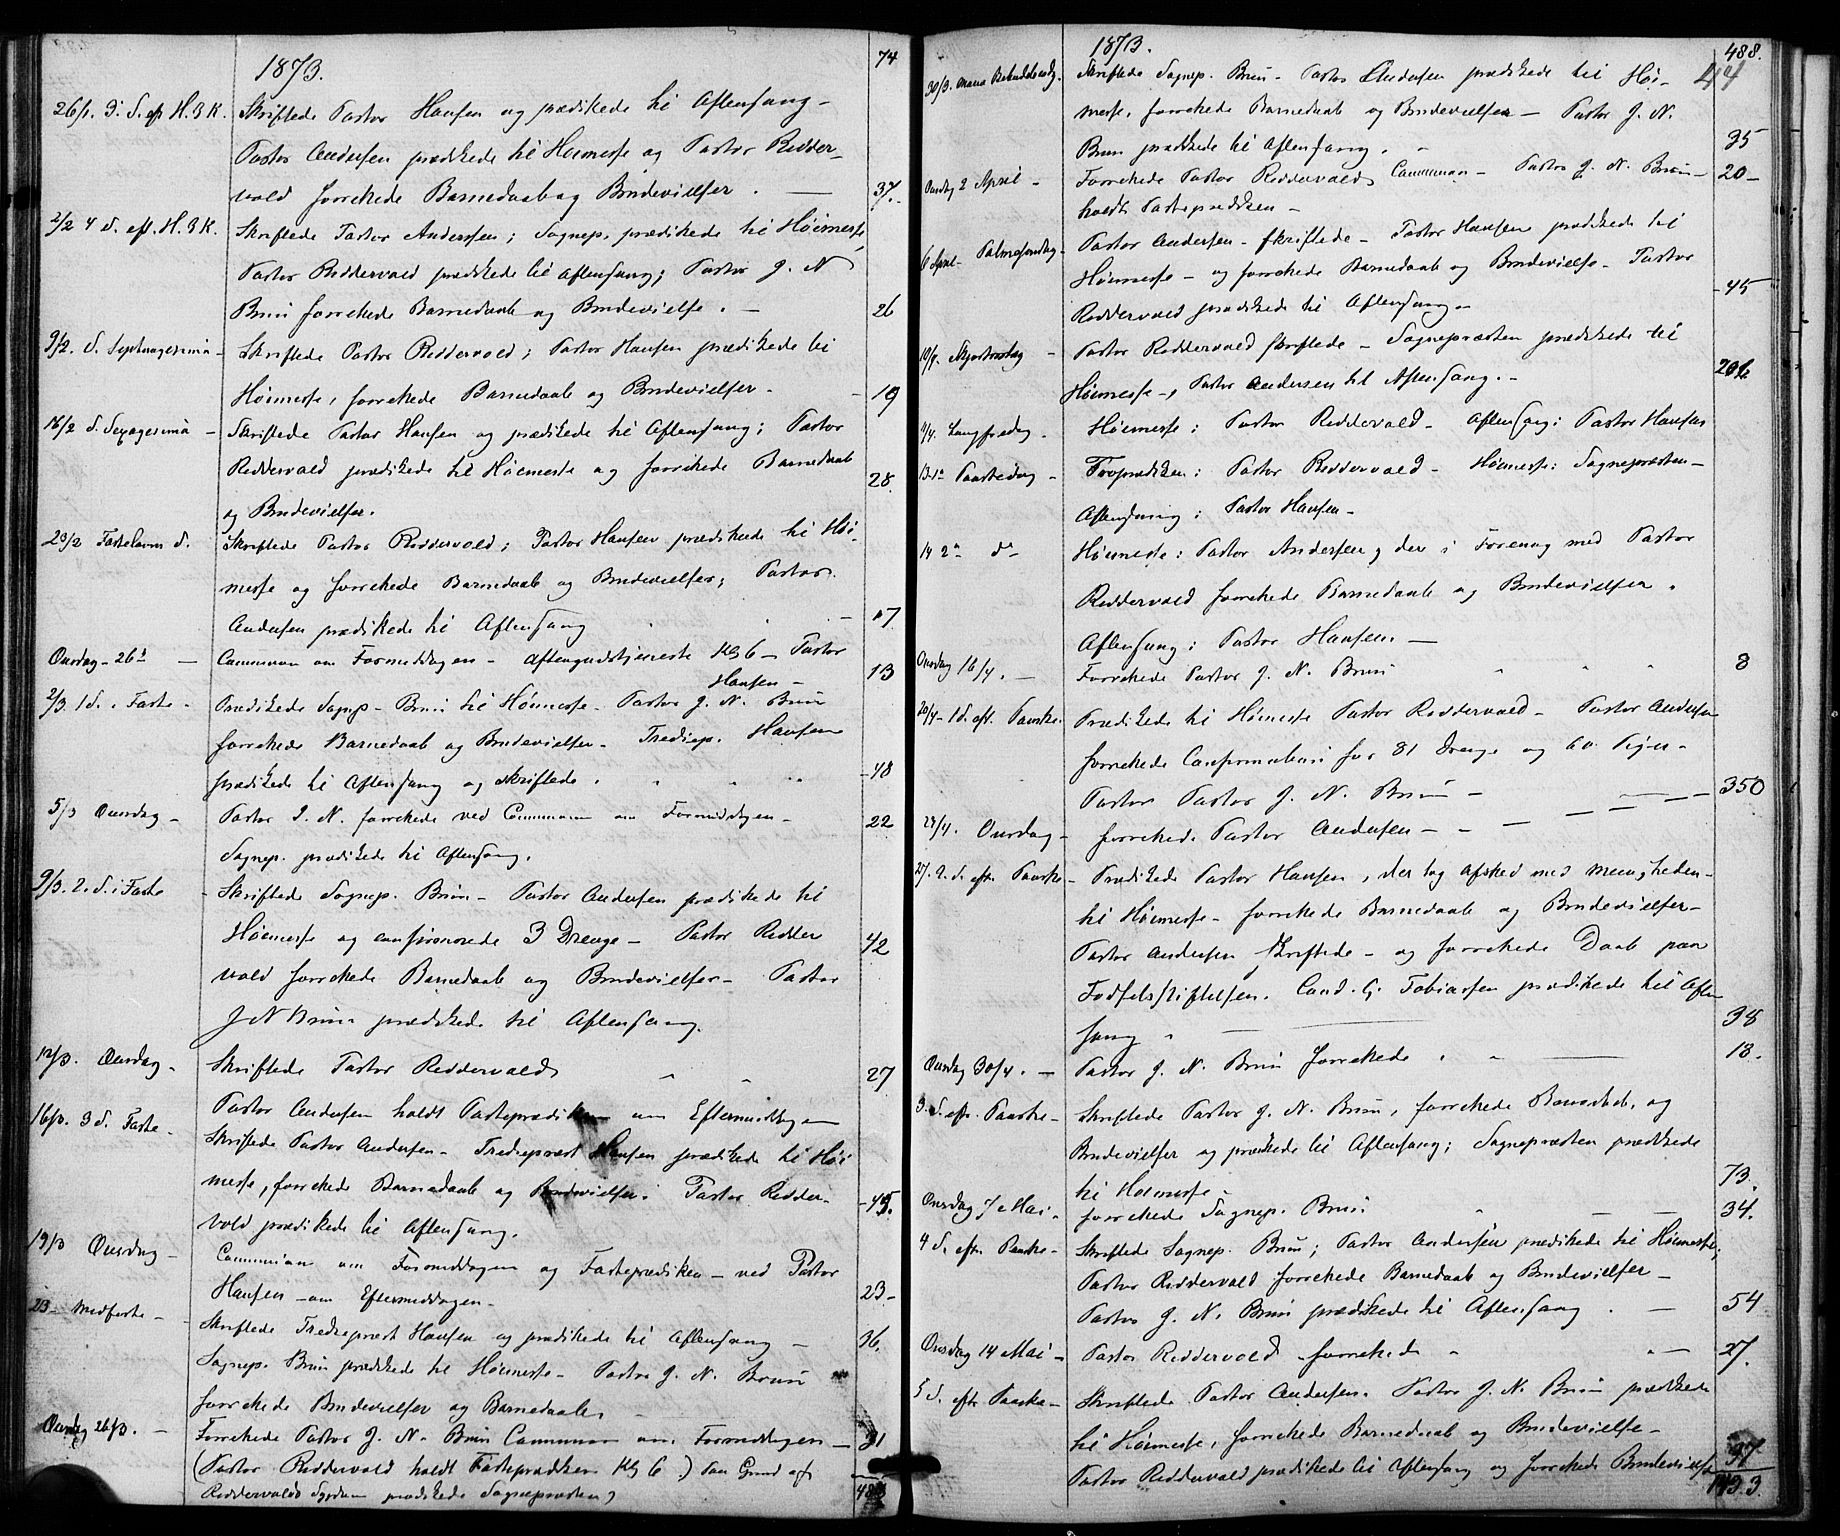 1873.
74
26/1. 3. S. ef H. 3 K. Skriftede Pastor Hansen og prædikede til Aftensang –
Pastor Andersen prædikede til Høimesse og Pastor Redder-
vold forrettede Barnedaab og Brudevielser. — 37.
2/2 4 S. eft. H. 3 K. Skriftede Pastor Andersen; Sognep. prædikede til Høimesse,
Pastor Reddervold prædikede til Aftensang; Pastor J. N.
Brun forrettede Barnedaab og Brudevielse. — 26
9/2. S. Septuagesima – Skriftede Pastor Reddervold; Pastor Hansen prædikede til
Høimesse, forrettede Barnedaab og Brudevielser – 19
16/2 S. Sexagesima – Skriftede Pastor Hansen og prædikede til Aftensang; Pastor
Reddervold prædikede til Høimesse og forrettede Barnedaab 28.
og Brudevielser.
23/2 Fastelavns S. Skriftede Pastor Reddervold; Pastor Hansen prædikede til Høi-
messe og forrettede Barnedaab og Brudevielser; Pastor
Andersen prædikede til Aftensang – 17.
Onsdag – 26d — Communion om Formiddagen – Aftengudstjeneste Kl 6 – Pastor 13
Hansen –
2/3. 1 S. i Faste – Prædikede Sognep – Brun til Høimesse – Pastor J. N. Brun
forrettede Barnedaab og Brudevielser – Trediep. Hansen
prædikede til Aftensang og skriftede. – 48
5/3 Onsdag – Pastor J. N. forrettede ved Communion om Formiddagen – 22
Sognep. prædikede til Aftensang.
9/3. 2. S. i Faste – Skriftede Sognep. Brun – Pastor Andersen prædikede til
Høimesse og confirmerede 3 Drenge – Pastor Redder 42
vold forrettede Barnedaab og Brudevielser – Pastor
J N Brun prædikede til Aftensang.
12/3. Onsdag – Skriftede Pastor Reddervold 27
Pastor Andersen holdt Fasteprædiken om Eftermiddagen
16/3. 3 S. Faste – Skriftede Pastor Andersen – Tredieprest Hansen prædikede til Høi
messe, forrettede Barnedaab og Brudevielser. Pastor Redder- – 45.
vold prædikede til Aftensang.
19/3 Onsdag – Communion om Formiddagen og Fasteprædiken – ved Pastor
Hansen – om Eftermiddagen – 23 –
23 – Midfaste – Skriftede Tredieprest Hansen og prædikede til Aftensang – 36.
Sognep. Brun prædikede til Høimesse – Pastor J. N. Brun
forrettede Brudevielser og Barnedaab.
Onsdag 26/3. — Forrettede Pastor J. N. Brun Communion om Formiddagen – 31
(Pastor Reddervold holdt Fasteprædiken Kl 6.) Paa Grund af
Reddervolds Sygdom prædikede Sognepræsten)
1873.
488.
44
30/3. Maria Bebudelsesdg. Skriftede Sognep. Brun – Pastor Andersen prædikede til Høi-
messe, forrettede Barnedaab og Brudevielser — Pastor J. N.
Brun prædikede til Aftensang. 35
Onsdag 2 April – Forrettede Pastor Reddervold Communion – Pastor J. N. Brun – 20 –
holdt Fasteprædiken –
6 April – Palmesøndag – Pastor Andersen – skriftede – Pastor Hansen prædikede til
Høimesse – og forrettede Barnedaab og Brudevielse – Pastor
Reddervold prædikede til Aftensang – – 45
10/4. Skjærtorsdag – Pastor Reddervold skriftede – Sognepræsten prædikede til
Høimesse –, Pastor Andersen til Aftensang. –
11/4. Langfredag. – Høimesse: Pastor Reddervold – Aftensang: Pastor Hansen
13. 1ste Paaskedag – Froprædiken: Pastor Reddervold – Høimesse: Sognepræsten –
Aftensang: Pastor Hansen –
14 2den do Høimesse: Pastor Andersen, der i Forening med Pastor
Reddervold forrettede Barnedaab og Brudevielser.
Aftensang: Pastor Hansen. —
Onsdag 16/4. — Forrettede Pastor J. N. Brun 8
20/4 – 1 S. eft. Paaske. Prædikede til Høimesse Pastor Reddervold – Pastor Andersen
forrettede Confirmation for 81 Drenge og 60 Piger –
Pastor Pastor J. N. Brun – — 350
23/4. Onsdag – forrettede Pastor Andersen – –
27. 2. S. efter Paaske – Prædikede Pastor Hansen, der tog Afsked med Menigheden –
til Høimesse – forrettede Barnedaab og Brudevielser –
Pastor Andersen skriftede – og forrettede Daab paa
Fødselsstiftelsen. Cand. G. Tobiassen prædikede til Aften
sang 38
Onsdag 30/4. — Pastor J. N. Brun forrettede 13.
3. S. eft. Paaske – Skriftede Pastor J. N. Brun, forrettede Barnedaab, og
Brudevielser og prædikede til Aftensang; Sognepræsten prædikede
til Høimesse – 73.
Onsdag 7 Mai. forrettede Sognep. Brun 34.
4 S. efter Paaske – Skriftede Sognep. Brun; Pastor Andersen prædikede til Høimesse;
Pastor Reddervold forrettede Barnedaab og Brudevielser –
Pastor J. N. Brun prædikede til Aftensang. — 54
Onsdag 14 Mai – Pastor Reddervold forrettede — 27.
5 S. efter Paaske – Skriftede Pastor Andersen. Pastor J. N. Brun prædikede
til Høimesse, forrettede Barnedaab og Brudevielse –
Pastor Reddervold prædikede til Aftensang og forrettede Brudevielse 37